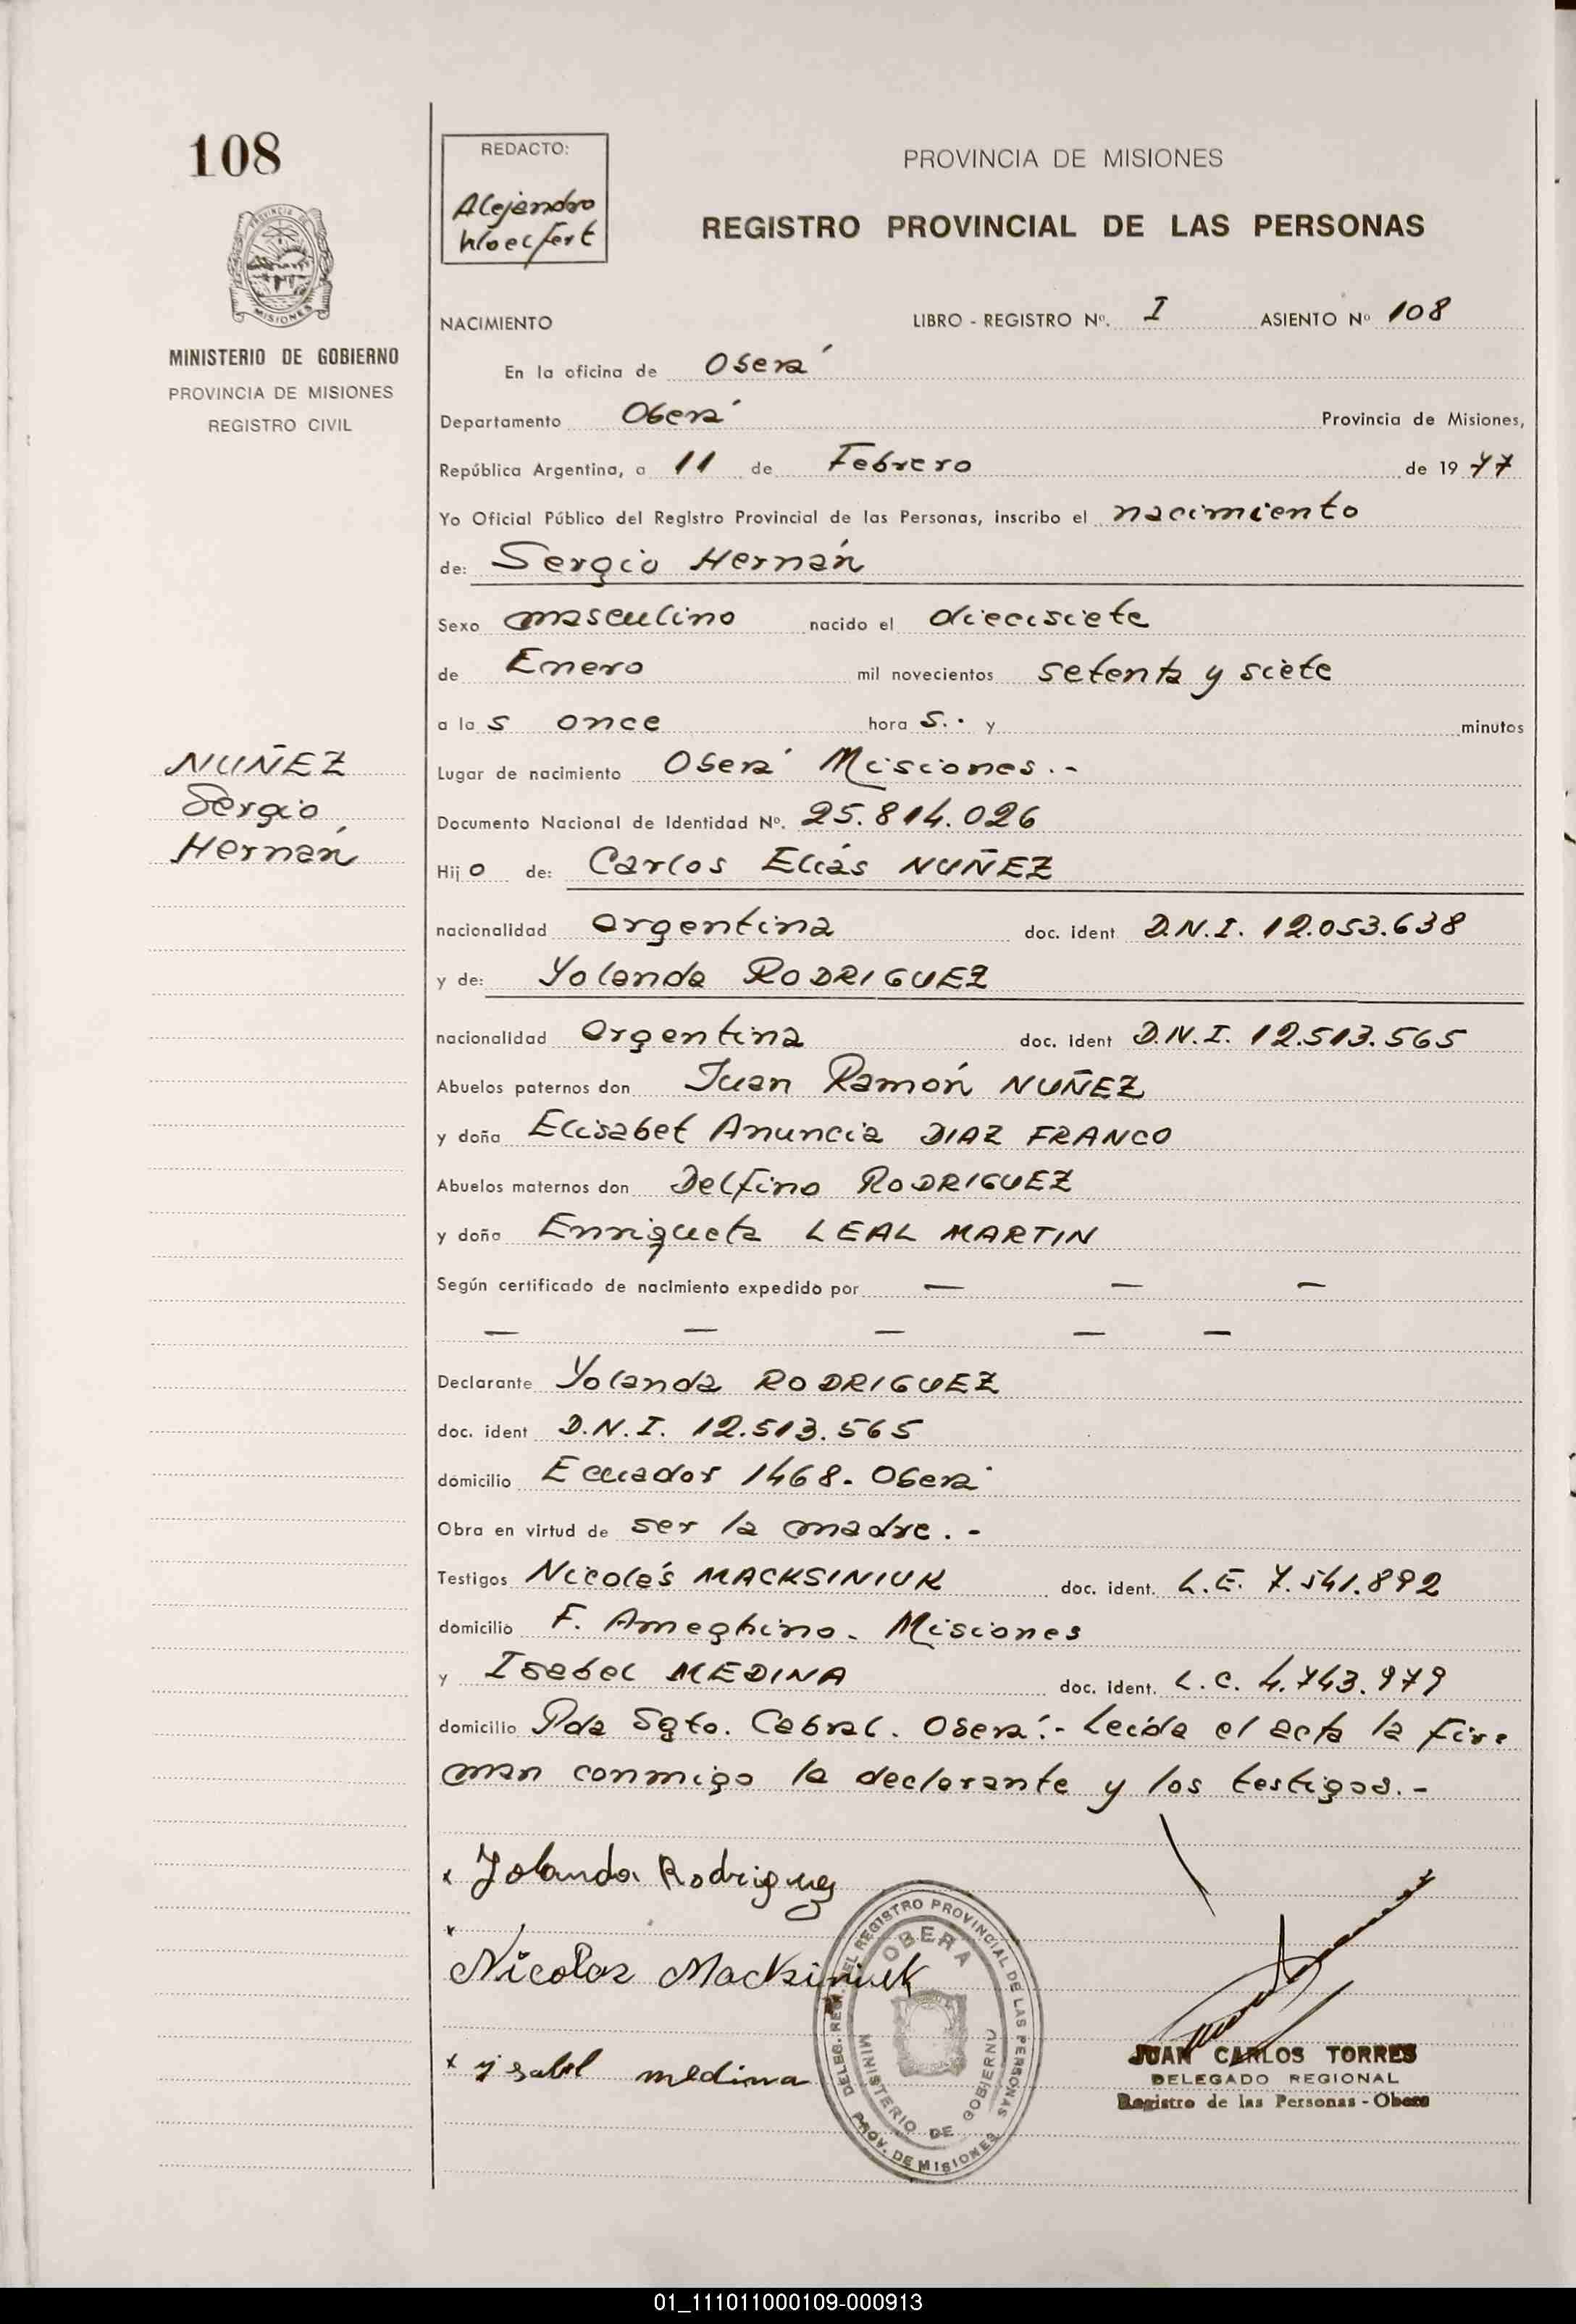 108
REDACTO:
Alejandro
PROVINCIA DE MISIONES
REGISTRO PROVINCIAL DE LAS PERSONAS
PROVINCIA DE
MISIONES
MINISTERIO DE GOBIERNO
PROVINCIA DE MISIONES
REGISTRO CIVIL
NACIMIENTO LIBRO - REGISTRO Nº. I ASIENTO Nº 108
En la oficina de Oberá
Departamento Oberá Provincia de Misiones,
República Argentina, a 11 de Febrero de 1977
Yo Oficial Público del Registro Provincial de las Personas, inscribo el nacimiento
de: Sergio Hernán
Sexo masculino nacido el diecisiete
de Enero mil novecientos setenta y siete
a las once horas.. y minutos
NUÑEZ
Sergio
Hernán
Lugar de nacimiento Oberá Misiones.-
Documento Nacional de Identidad Nº. 25.814.026
Hijo de: Carlos Elías NUÑEZ
nacionalidad argentina doc. ident D.N.I. 12.053.638
y de: Yolanda RODRIGUEZ
nacionalidad argentina doc. ident D.N.I. 12.513.565
Abuelos paternos don Juan Ramón NUÑEZ
y doña Elisabet Anuncia DIAZ FRANCO
Abuelos maternos don Delfino RODRIGUEZ
y doña Enriqueta LEAL MARTIN
Según certificado de nacimiento expedido por — — —
— — — — —
Declarante Yolanda RODRIGUEZ
doc. ident D.N.I. 12.513.565
domicilio Ecuador 1468. Oberá
Obra en virtud de ser la madre.-
Testigos Nicolás MACKSINIUK doc. ident. L.E. 7.541.892
domicilio F. Ameghino. Misiones
y Isabel MEDINA doc. ident. L.C. 4.743.979
domicilio Pda Sgto. Cabral. Oberá.- Leída el acta la fir-
man conmigo la declarante y los testigos.-
x Yolanda Rodriguez
x
Nicolas Macksiniuk
x ysabel medina
DELEG. REG. DEL REGISTRO PROVINCIAL DE LAS PERSONAS
OBERA
MINISTERIO DE GOBIERNO
PROV. DE MISIONES
JUAN CARLOS TORRES
DELEGADO REGIONAL
Registro de las Personas - Obera
01_111011000109-000913